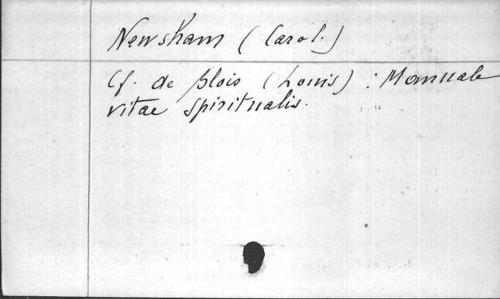 Newsham (Carol.)
Cf. de Blois (Louis) : Manuale
vitae spiritualis.